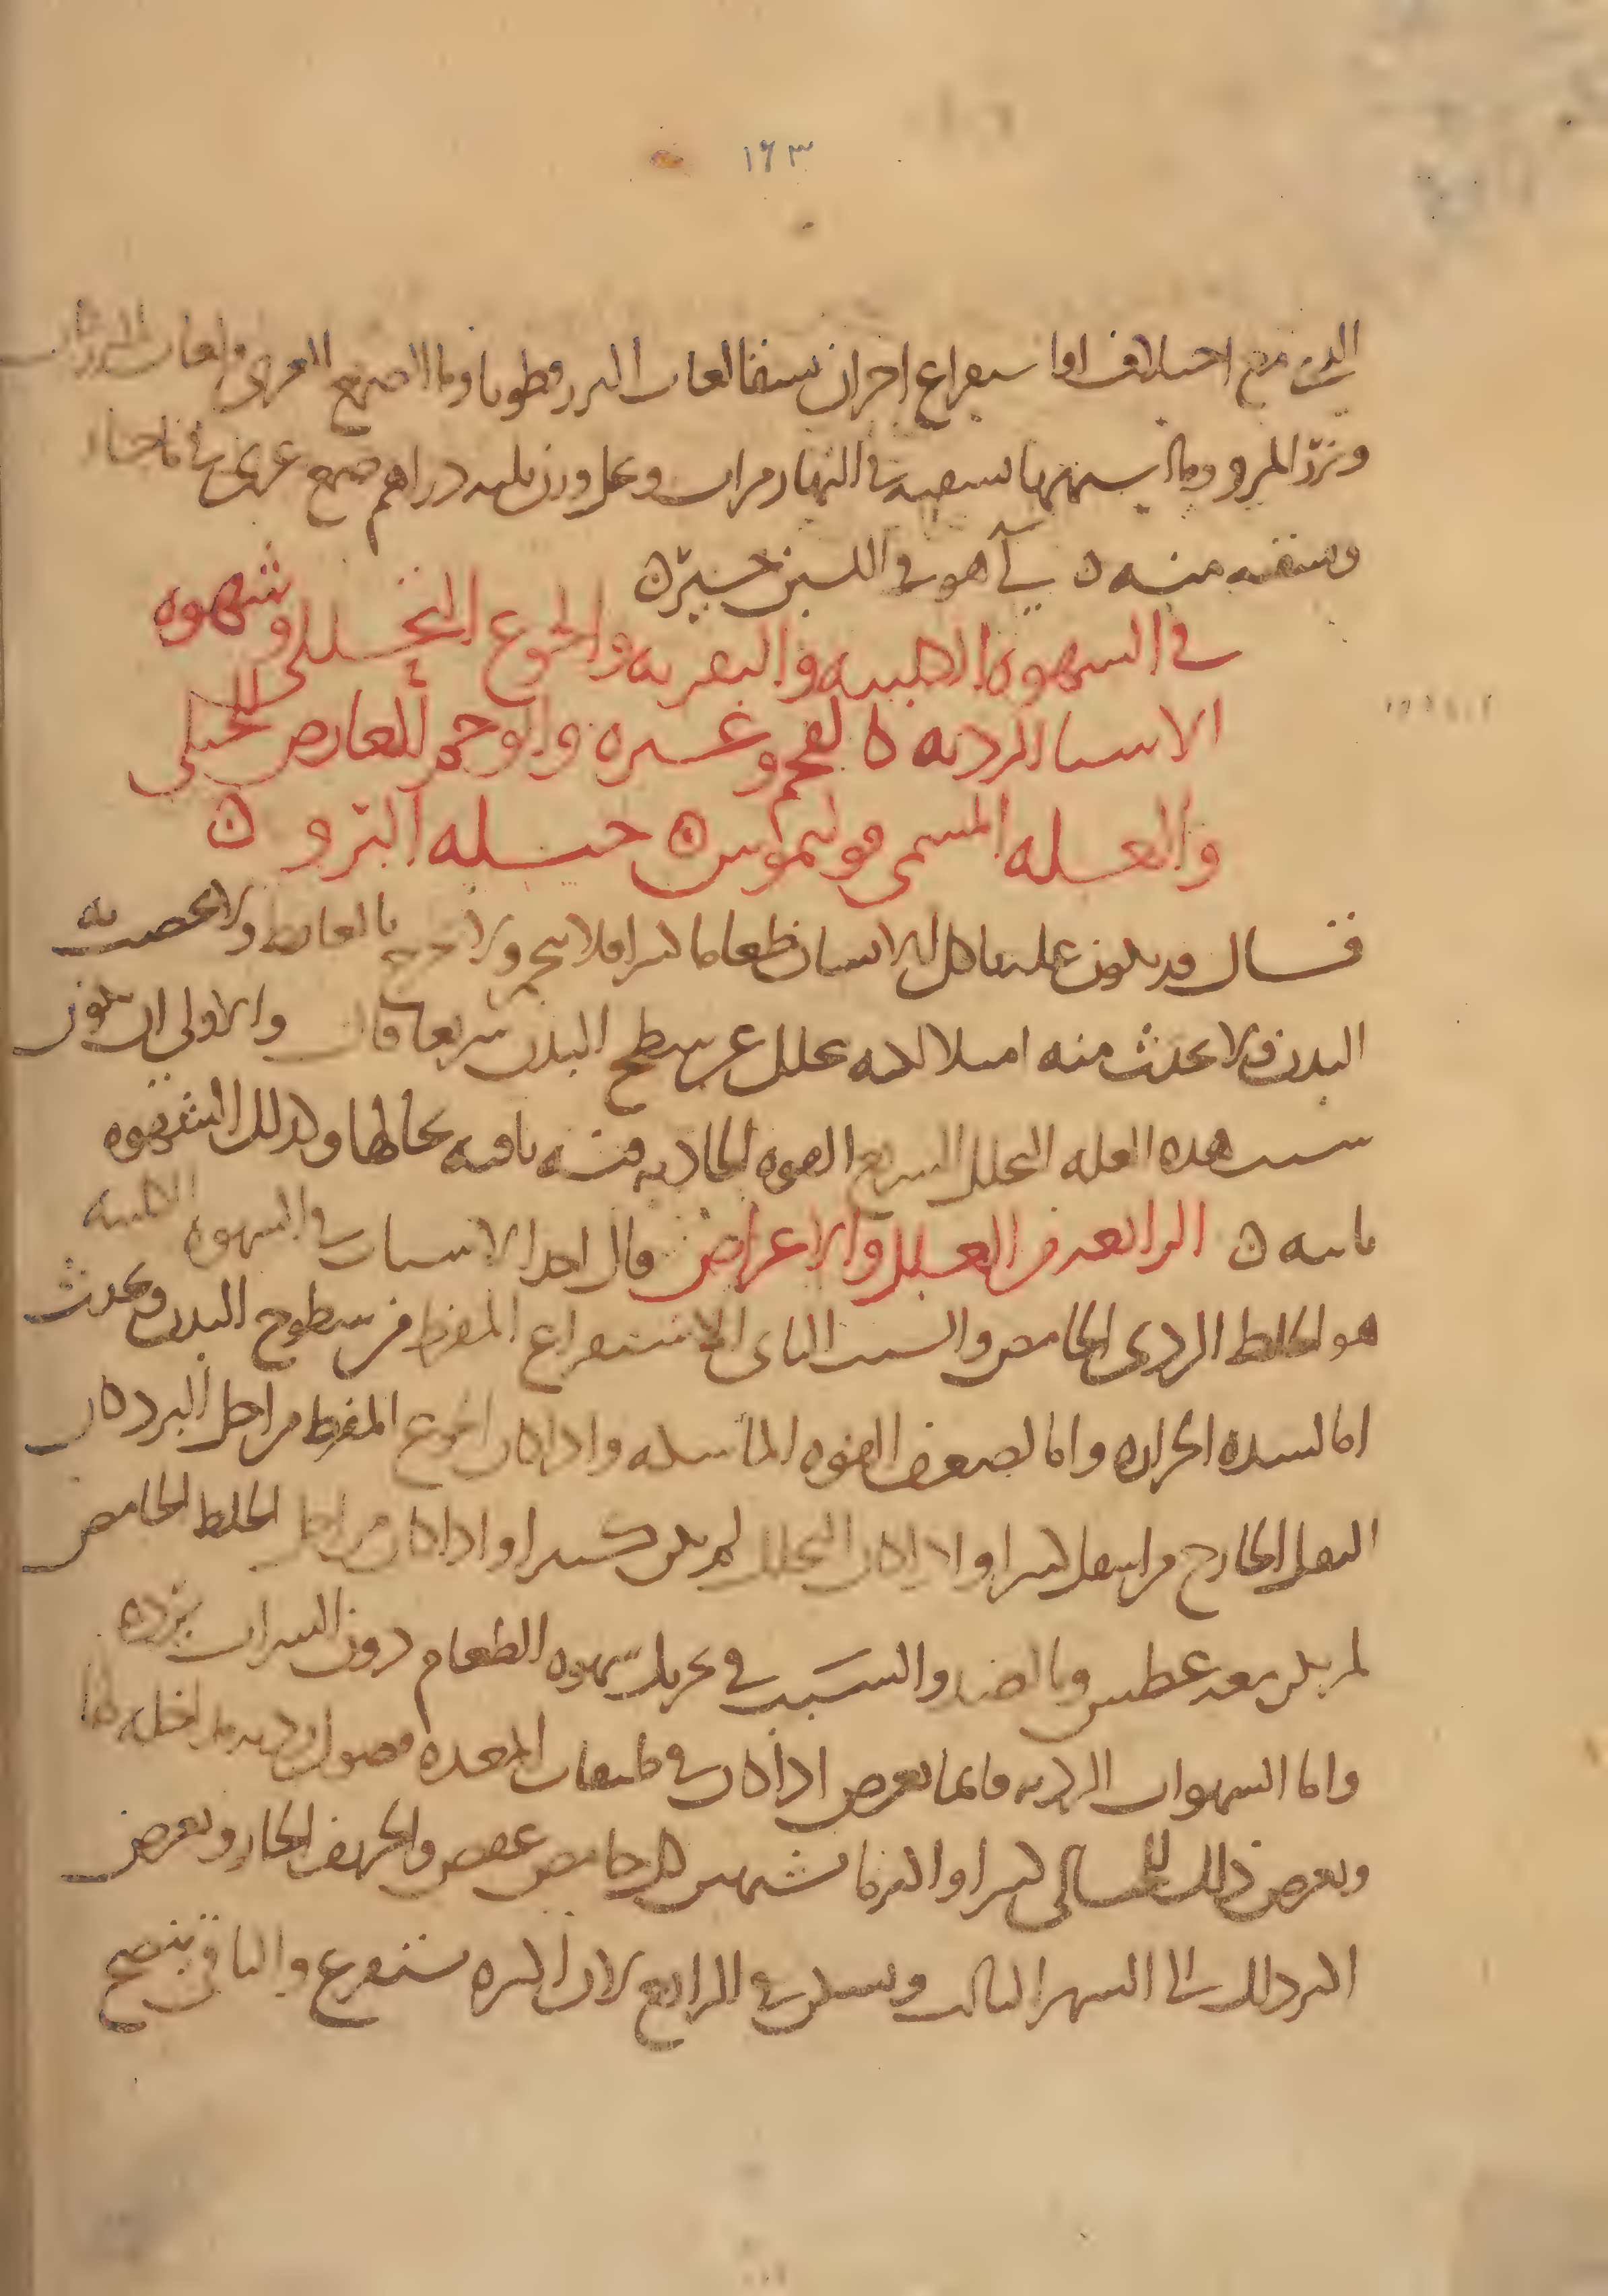 ١٦٣
الدن مع اختلاف اما ستفراغ احزان يسقا لعاب البزرقطونا وما الصمغ العربى ولعاب
وبزر المرو وما يسهها تسقيه في النهار مرات وعمل وزن ثلثه دراهم صمغ عربى في ما حار
وسقيه منه ه آ هو في اللبن خير ه
في الشهوه الكلبيه والبقريه والجوع التحللى وشهوه
الاشيا الرديه كالفحم وغيره والوحم العارض للحبلى
والعله المسمى بوليموس ه حيله البرو ه
قال قد يكون علل ياكل الانسان طعاما كثيرا فلا يتخم ولا يخرج بالغائط ولا يخصب به
البدن ولا يحدث منه امتلا لانه يحلل عن سطح البدن سريعا قال والاولى ان يكون
سبب هذه العله التحلل السريع القوه الجاذبه فيه باقيه بحالها وكذلك الشهوه
باقيه ه الرابعه من العلل والاعراض قال احد الاسباب في الشهوه الكلبيه
هو الخلط الردى الحامض والسبب الثانى الاستفراغ المفرط من سطوح البدن ويحدث
اما لشده الحراره واما لضعف القوه الماسكه واذا كان الجوع المفرط من اجل البرد كان
الثفل الخارج من اسفل كثيرا واذا كان التحلل لم يكن كثيرا واذا كان من اجل الخلط الحامض
لم يكن معه عطس وبالضد والسبب في تحريك شهوه الطعام دون الشراب برده
واما الشهوات الرديه فانما تعرض اذا كان في طبقات المعده فضول رديه مداخله لها
ويعرض ذلك للحبالى كثيرا واكثر ما يشتهين كل حامض عفص والحريف الحار ويعرض
اكثر ذلك الى الشهر الثالث ويسكن في الرابع لان اكثره يستفرغ والباقى ينضج